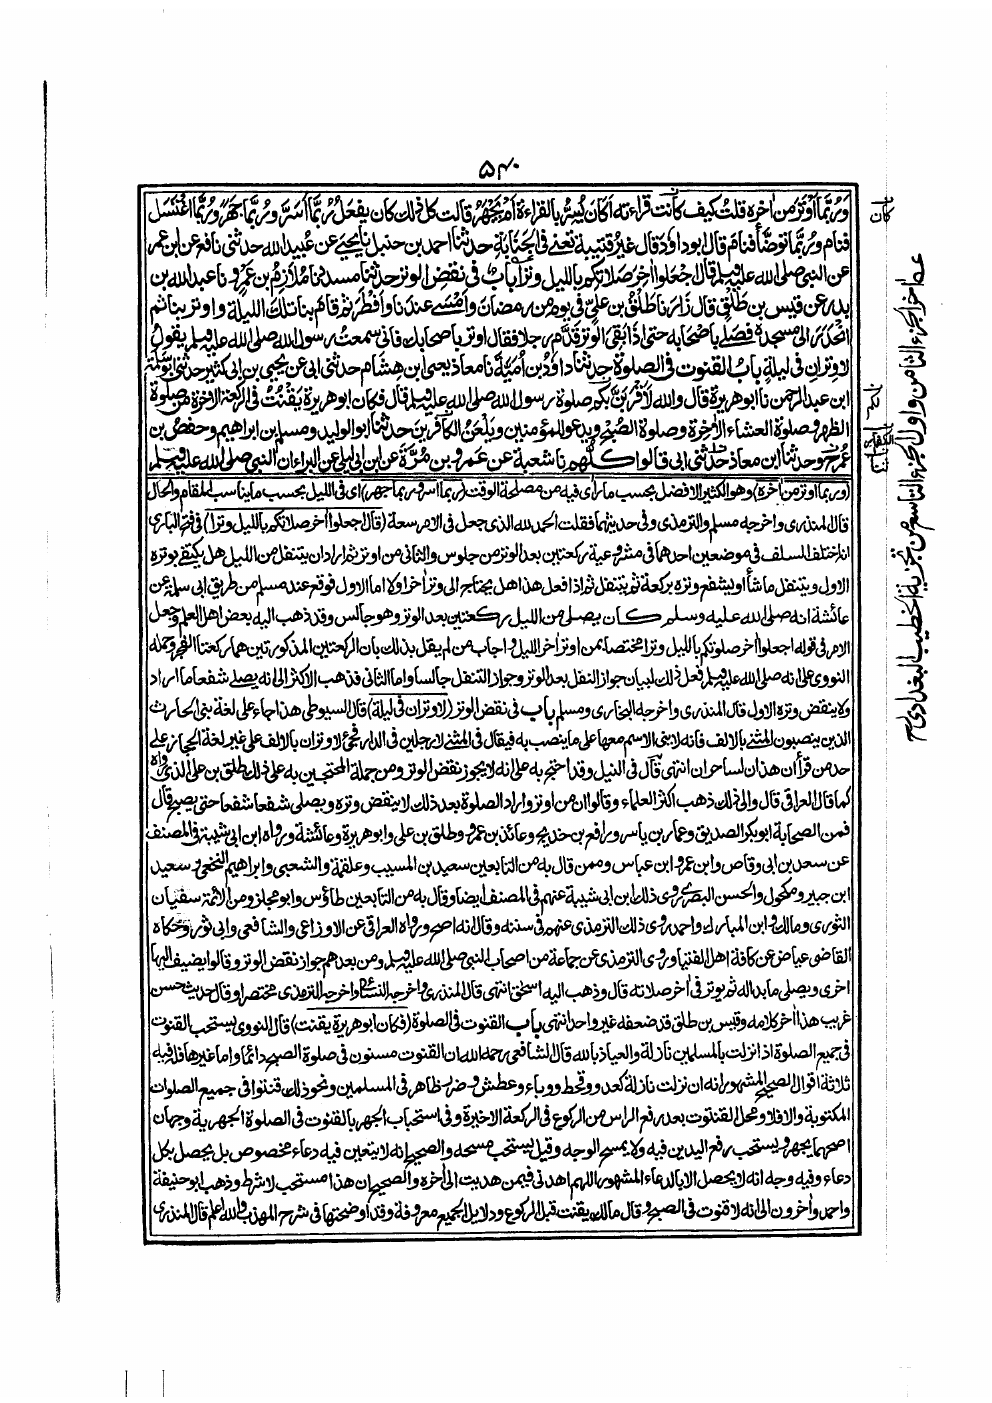 ۵۴۰
وَرُبَّمَا أَوْتَرَ مِنْ اٰخِرِهٖ قلتُ كيف كانت قراءته أكان يُسِرُّ بالقراءة أم يَجْهَرُ قالت كل ذلك كان يفعل رُبَّمَا أَسَرَّ ورُبَّمَا جَهَرَ ورُبَّمَا اغْتَسَلَ
فنام ورُبَّمَا توضَّأ فنام قال ابو داود قال غيرُ قتيبة تعنى فى الجنابة حدثنا احمد بن حنبل نا يحيى عن عبيد الله حدثنى نافع عن ابن عمر
عن النبى صلى الله عليه وسلم قال اجعلوا اٰخر صلاتكم بالليل وترا باب فى نقض الوتر حدثنا مسدد نا ملازم بن عمرو نا عبد الله بن
بدر عن قيس بن طلق قال زارنا طلق بن على فى يوم من رمضان وامسى عندنا وافطر ثم قام بنا تلك الليلة واوتر بنا ثم
انحدر الى مسجده فصلى باصحابه حتى اذا بقى الوتر قدَّم رجلا فقال اوتر باصحابك فانى سمعت رسول الله صلى الله عليه وسلم يقول
لا وتران فى ليلةٍ باب القنوت فى الصلوة حدثنا داود بن أمية نا معاذ يعنى ابن هشام حدثنى ابى عن يحيى بن ابى كثير حدثنى ابو سلمة
ابن عبد الرحمن نا ابو هريرة قال والله لأقربن بكم صلوة رسول الله صلى الله عليه وسلم قال فكان ابو هريرة يقنت فى الركعة الاٰخرة من صلوة
الظهر وصلوة العشاء الاٰخرة وصلوة الصبح ويدعو للمؤمنين ويلعن الكافرين حدثنا ابو الوليد ومسلم بن ابراهيم وحفص بن
عمر ح وحدثنا ابن معاذ حدثنى ابى قالوا كلهم نا شعبة عن عمرو بن مُرَّة عن ابن ابى ليلى عن البراء ان النبى صلى الله عليه وسلم
(وربما اوتر من اٰخره) وهو الكثير الافضل بحسب ما رأى فيه من مصلحة الوقت (ربما اسر وربما جهر) اى فى الليل بحسب ما يناسب المقام والحال
قال المنذرى واخرجه مسلم والترمذى وفى حديثهما فقلت الحمد لله الذى جعل فى الامر سعة (قال اجعلوا اٰخر صلاتكم بالليل وترا) فى فتح البارى
انه اختلف السلف فى موضعين احدهما فى مشروعية ركعتين بعد الوتر من جلوس والثانى من اوتر ثم اراد ان يتنفل من الليل هل يكتفى بوتره
الاول ويتنفل ما شاء او يشفع وتره بركعة ثم يتنفل ثم اذا فعل هذا هل يحتاج الى وتر اٰخر اولا اما الاول فوقع عند مسلم من طريق ابى سلمة عن
عائشة انه صلى الله عليه وسلم كان يصلى من الليل ركعتين بعد الوتر وهو جالس وقد ذهب اليه بعض اهل العلم وجعل
الامر فى قوله اجعلوا اٰخر صلوتكم بالليل وترا مختصا بمن اوتر اٰخر الليل واجاب من لم يقل بذلك بان الركعتين المذكورتين هما ركعتا الفجر وحمله
النووى على انه صلى الله عليه وسلم فعل ذلك لبيان جواز التنفل بعد الوتر وجواز التنفل جالسا واما الثانى فذهب الاكثر الى انه يصلى شفعا ما اراد
ولا ينقض وتره الاول قال المنذرى واخرجه البخارى ومسلم باب فى نقض الوتر (لا وتران فى ليلة) قال السيوطى هذا جاء على لغة بنى الحارث
الذين ينصبون المثنى بالالف فانه لا يبنى الاسم معها على ما ينصب به فيقال فى المثنى لا رجلين فى الدار فجئ لا وتران بالالف على غير لغة الحجاز على
حد من قرأ ان هذان لساحران انتهى قال فى النيل وقد احتج به على انه لا يجوز نقض الوتر ومن جملة المحتجين به على ذلك طلق بن على الذى رواه
كما قال العراقى قال والى ذلك ذهب اكثر العلماء وقالوا ان من اوتر واراد الصلوة بعد ذلك لا ينقض وتره ويصلى شفعا شفعا حتى يصبح قال
فمن الصحابة ابو بكر الصديق وعمار بن ياسر ورافع بن خديج وعائذ بن عمرو وطلق بن على وابو هريرة وعائشة ورواه ابن ابى شيبة فى المصنف
عن سعد بن ابى وقاص وابن عمر وابن عباس وممن قال به من التابعين سعيد بن المسيب وعلقمة والشعبى وابراهيم النخعى وسعيد
ابن جبير ومكحول والحسن البصرى روى ذلك ابن ابى شيبة عنهم فى المصنف ايضا وقال به من التابعين طاؤس وابو مجلز ومن الائمة سفيان
الثورى ومالك وابن المبارك واحمد روى ذلك الترمذى عنهم فى سننه وقال انه اصح ورواه العراقى عن الاوزاعى والشافعى وابى ثور وحكاه
القاضى عياض عن كافة اهل الفتيا وروى الترمذى عن جماعة من اصحاب النبى صلى الله عليه وسلم ومن بعدهم جواز نقض الوتر وقالوا يضيف اليها
اخرى ويصلى ما بدا له ثم يوتر فى اٰخر صلاته قال وذهب اليه اسحق انتهى قال المنذرى واخرجه النسائى واخرجه الترمذى مختصرا وقال حديث حسن
غريب هذا اٰخر كلامه وقيس بن طلق قد ضعفه غير واحد انتهى باب القنوت فى الصلوة (فكان ابو هريرة يقنت) قال النووى يستحب القنوت
فى جميع الصلوة اذا نزلت بالمسلمين نازلة والعياذ بالله قال الشافعى رحمه الله ان القنوت مسنون فى صلوة الصبح دائما واما غيرها فله فيه
ثلاثة اقوال الصحيح المشهور انه ان نزلت نازلة كعدو وقحط ووباء وعطش وضرر ظاهر فى المسلمين ونحو ذلك قنتوا فى جميع الصلوات
المكتوبة والا فلا ومحل القنوت بعد رفع الراس من الركوع فى الركعة الاخيرة وفى استحباب الجهر بالقنوت فى الصلوة الجهرية وجهان
اصحهما يجهر ويستحب رفع اليدين فيه ولا يمسح الوجه وقيل يستحب مسحه والصحيح انه لا يتعين فيه دعاء مخصوص بل يحصل بكل
دعاء وفيه وجه انه لا يحصل الا بالدعاء المشهور اللهم اهدنى فيمن هديت الى اٰخره والصحيح ان هذا مستحب لا شرط وذهب ابو حنيفة
واحمد واٰخرون الى انه لا قنوت فى الصبح وقال مالك يقنت قبل الركوع ودلايل الجميع معروفة وقد اوضحتها فى شرح المهذب والله اعلم قال المنذرى
كان
بكم
الكفار
ثنا
اٰخر الجزء الثامن واول الجزء التاسع من تجزية الخطيب البغدادى